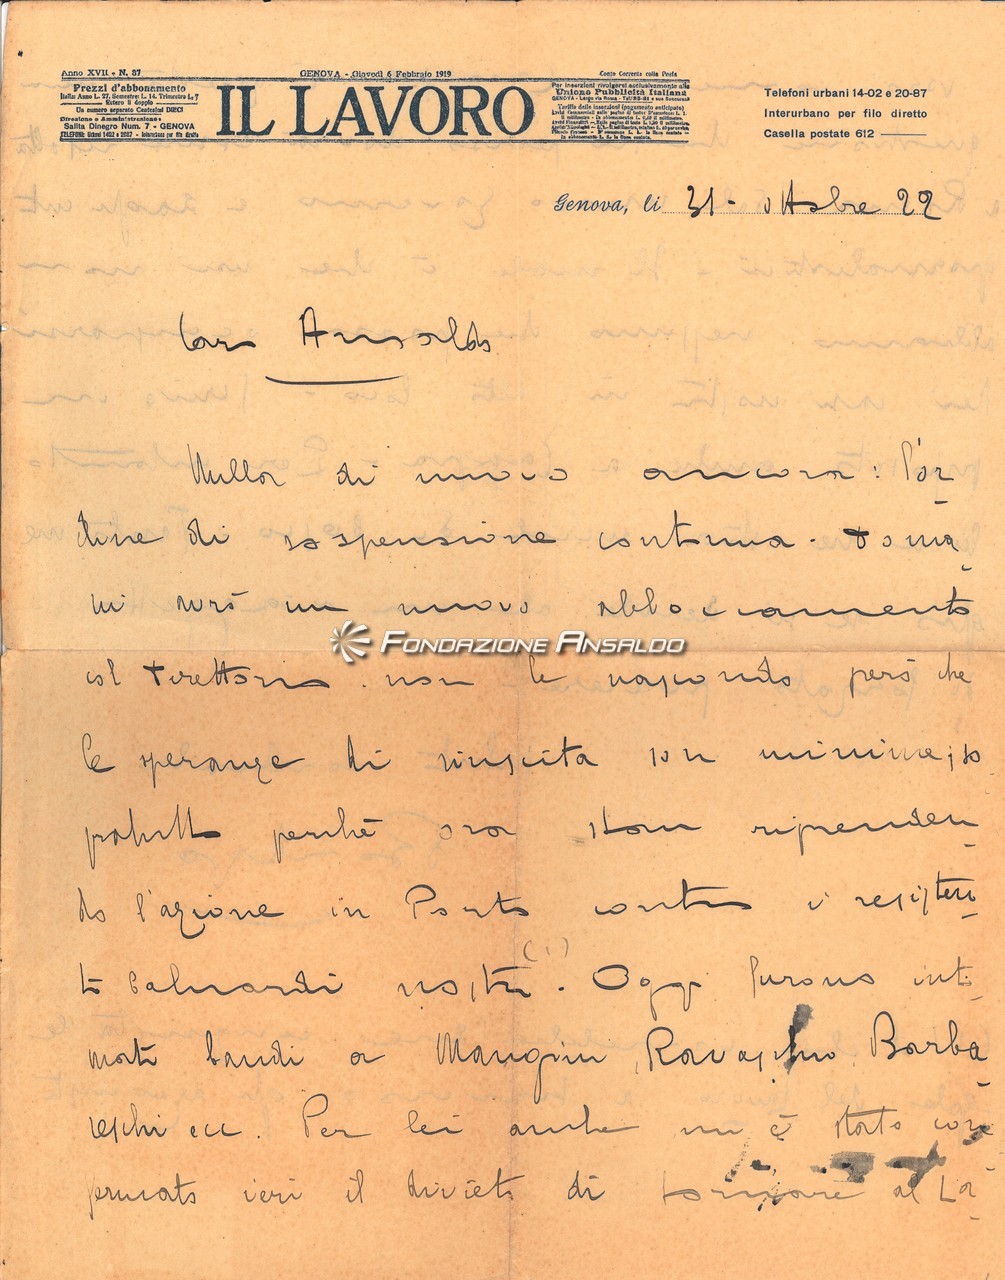 Anno XVII - N. 37
GENOVA - Giovedì 6 Febbraio 1919
Conto Corrente colla Posta
Prezzi d'abbonamento
Italia: Anno L. 27. Semestre: L. 14. Trimestre L. 7
Estero il doppio
Un numero separato Centesimi DIECI
Direzione e Amministrazione:
Salita Dinegro Num. 7 - GENOVA
IL LAVORO
Per inserzioni rivolgersi esclusivamente alla
Unione Pubblicità Italiana
Tariffa delle inserzioni (pagamento anticipato)
Telefoni urbani 14-02 e 20-87
Interurbano per filo diretto
Casella postale 612
Genova, li 31 - ottobre 22
Caro Ansaldo
Nulla di nuovo ancora: l'or-
dine di sospensione continua. Doma-
ni avrò un nuovo abboccamento
col Direttorio. non le nascondo però che
le speranze di riuscita son minime,
perchè ora stan riprenden-
do l'azione in Porto contro i
nostri (1). Oggi furono inti-
mati bandi a Mangini, Ravaschio, Barba-
reschi ecc. Per lei anche mi è stato con-
fermato ieri il divieto di tornare al La-
FONDAZIONE ANSALDO